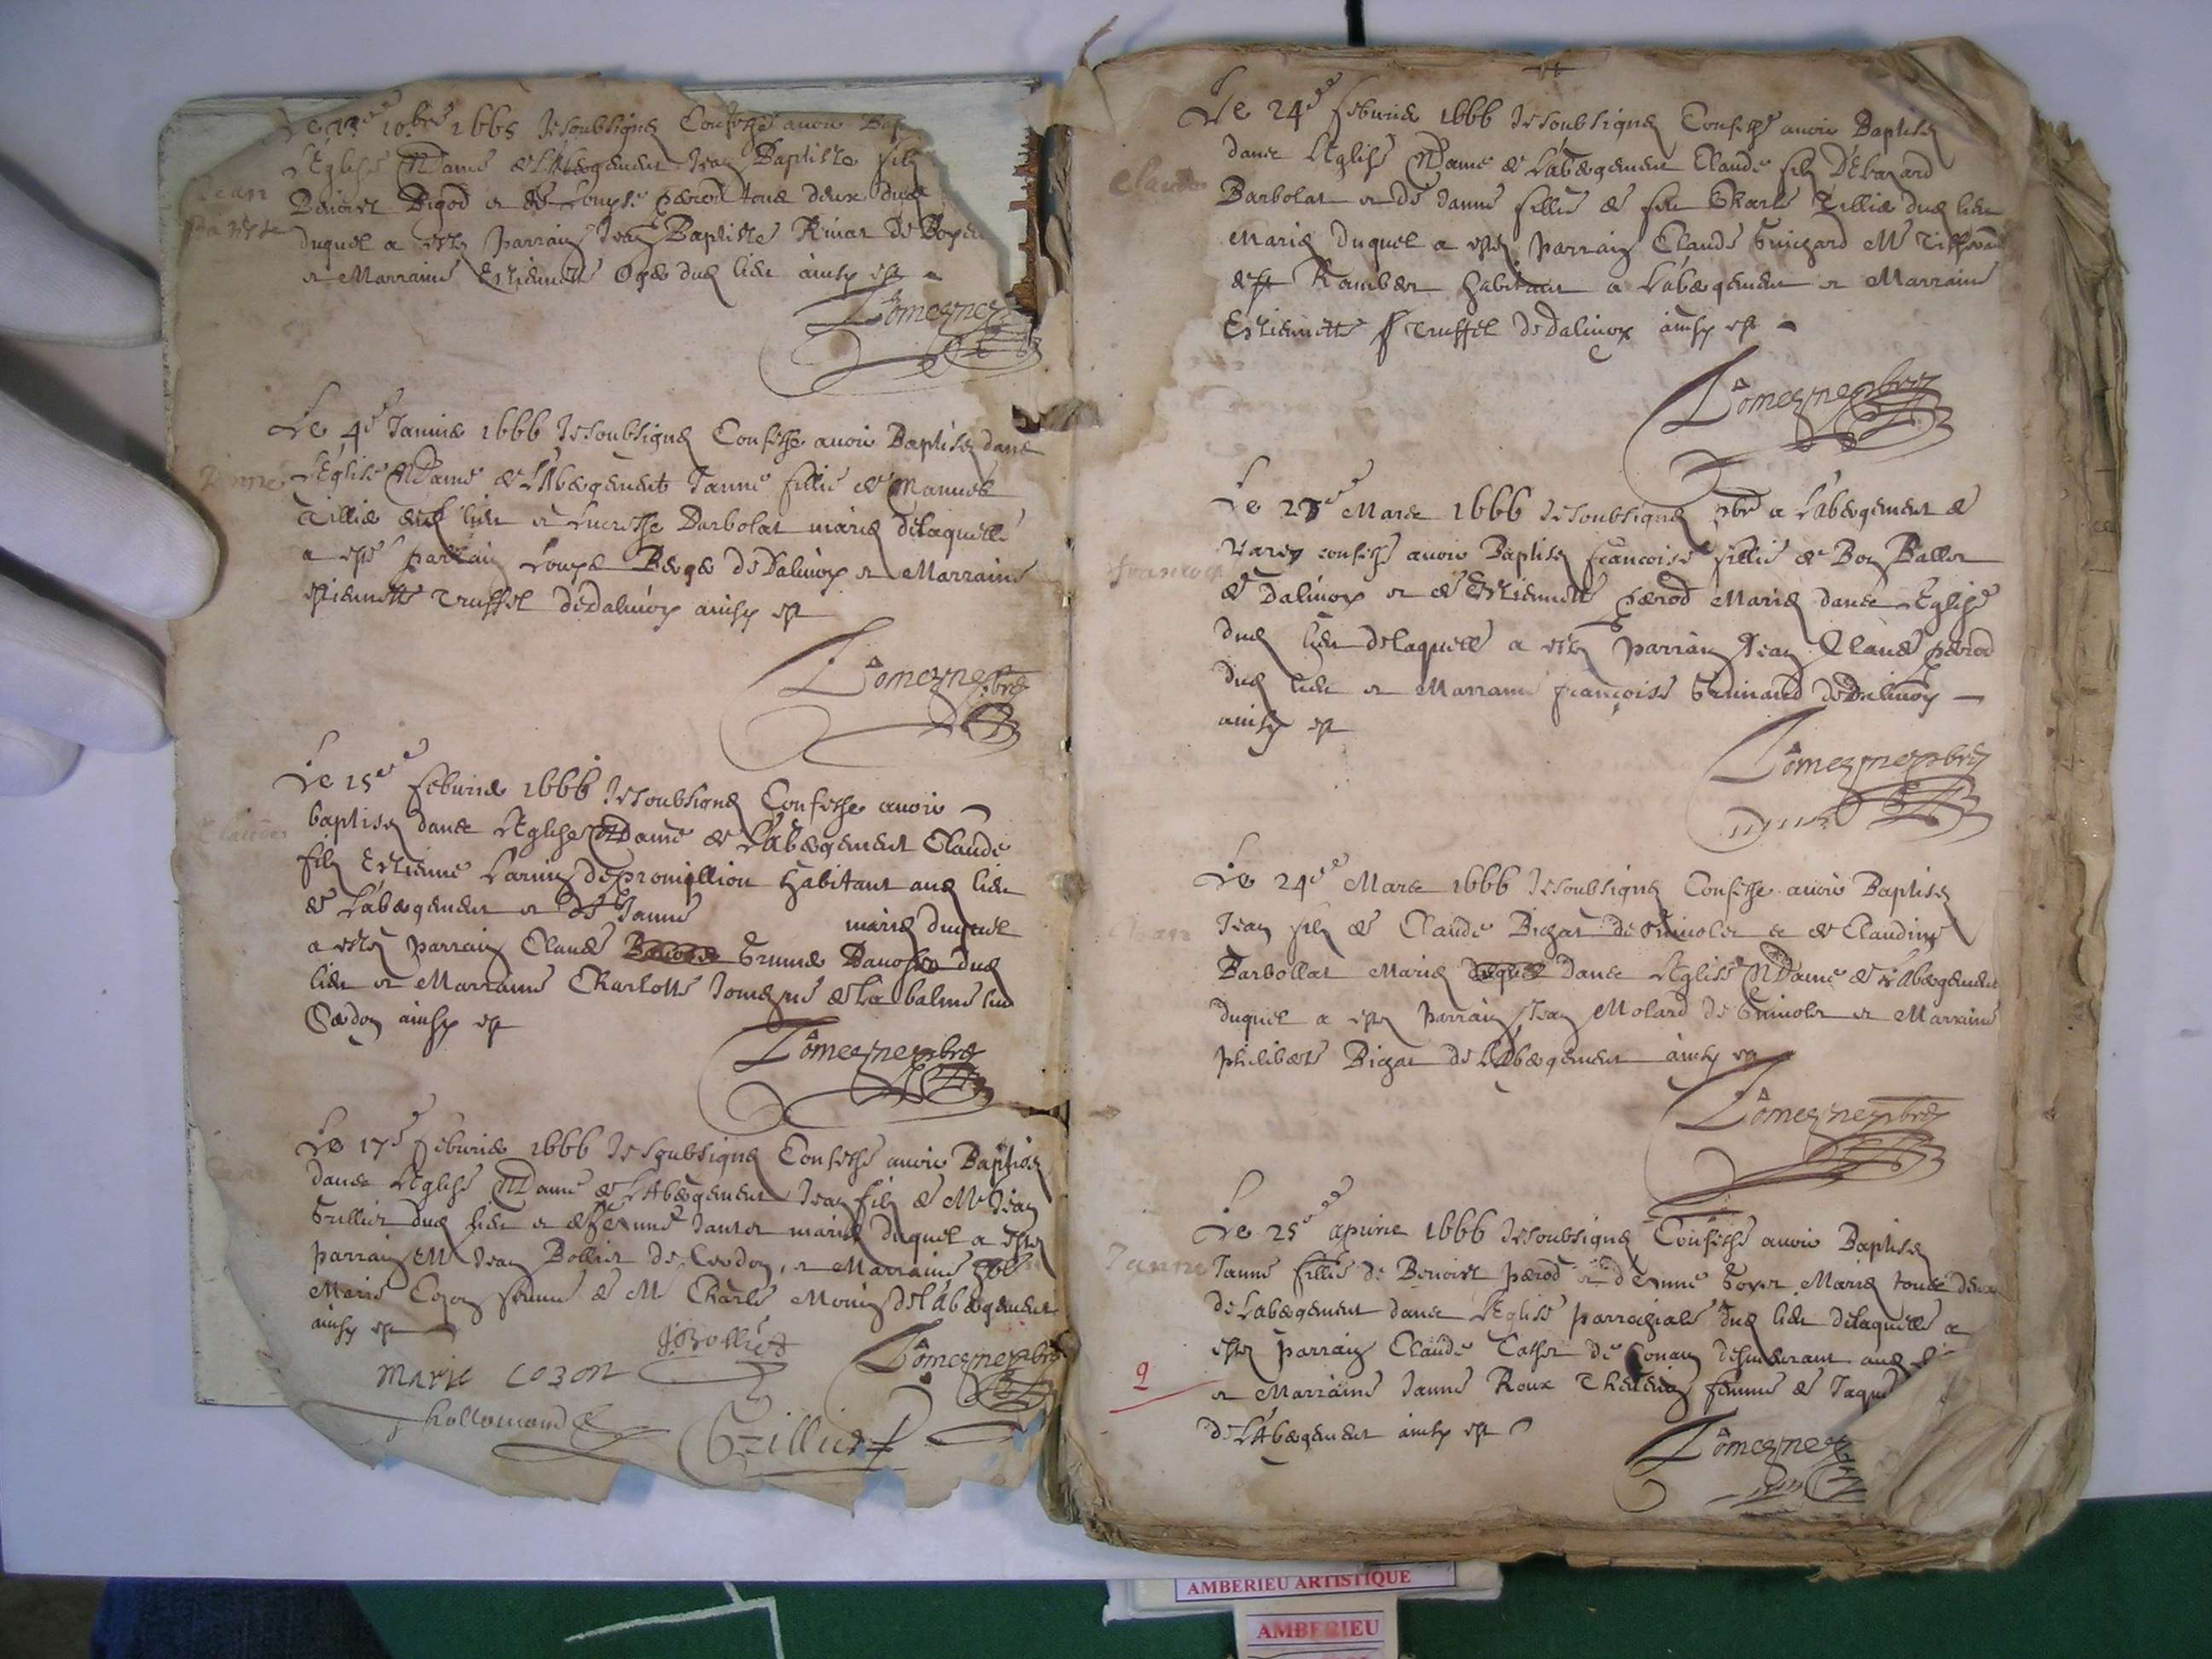 Le 13e 10bre 1665 Je soubsigné Confesse avoir Bap
L'Eglise NDame de L'Abergement Jean Baptiste filz
Jean
Benoict Bigod et de Louyse perrod tous deux dud
Baptiste
duquel a esté parrain Jean Baptiste Rivat de Boye
et Marraine Estiennette Oger dud lieu ainsy est
Jomezne
Le 4e Janvier 1666 Je soubsigné Confesse avoir Baptisé dans
L'Eglise NDame de L'Abergement Janne fillie de Manuel
Tillier dud lieu et Lucresse Barbolat mariés de laquelle
a esté parrain Loupe Berger de Dalivoy et Marraine
estiennette Truffet de Dalivoy ainsy est
Jomezne pbre
Le 15e feburier 1666 Je soubsigné Confesse avoir
baptisé dans L'Eglise NDame de L'Abergement Claude
Claude
filz Estienne Larin de promillion habitant aud lieu
de L'abergement et de Janne mariés duquel
a esté parrain Claude Brunet dud
lieu et Marraine Charlotte Jomezne de La balme sur
Cerdon ainsy est
Jomezne pbre
Le 17e feburier 1666 Je soubsigné Confesse avoir Baptisé
dans L'Eglise NDame de L'Abergement Jean filz de Mr Jean
Grillier dud lieu et de Janne Jantet mariés duquel a esté
parrain Mr Jean Bolliet de Cerdon, et Marraine
Marie Cozon femme de Mr Charles Monin de L'abergement
ainsy est
JBolliet
Jomezne pbre
Marie cozon
Grilliet
Le 24e feburier 1666 Je soubsigné Confesse avoir Baptisé
dans L'Eglise NDame de L'abergement Claude filz D'Ebarard
Claude
Barbolat et de Janne fillie de feu Charle Tillier dud lieu
Mariés duquel a esté parrain Claude Guichard Me Tisserand
de St Rambert habitant a L'abergement et Marraine
Estiennette Truffet de Dalivoy ainsy est
Jomezne pbre
Le 23e Mars 1666 Je soubsigné pbre a L'abergement de
Varey confesse avoir Baptisé francoise fillie de Boz Ballet
francoise
de Dalivoy et de Estiennette perrod Mariés dans L'Eglise
dud lieu de laquelle a esté parrain Jean Claude perrod
dud lieu et Marraine françoise de Dalivoy
ainsy est
Jomezne pbre
Le 24e Mars 1666 Je soubsigné Confesse avoir Baptisé
Jean
Jean filz de Claude Bigat de et de Claudine
Barbollat Mariés dans L'Eglise NDame de L'Abergement
duquel a esté parrain Jean Molard de et Marraine
philiberte Bigat de L'Abergement ainsy est
Jomezne pbre
Le 25e apvril 1666 Je soubsigné Confesse avoir Baptisé
Janne
Janne fillie de Benoict perrod et d'Anne Goyet Mariés tous deux
de L'abergement dans L'Eglise parrochiale dud lieu de laquelle a
esté parrain Claude Cathet de Conan demeurant aud
2
et Marraine Janne Roux femme de Jaque
de L'Abergement ainsy est
Jomezne
AMBERIEU ARTISTIQUE
AMBERIEU